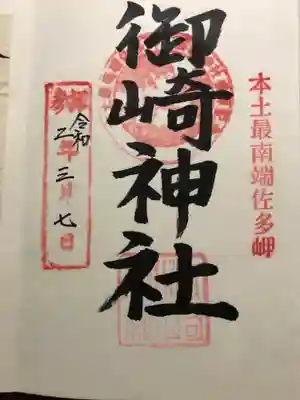 本土最南端佐多岬
御崎神社
令和二年三月七日